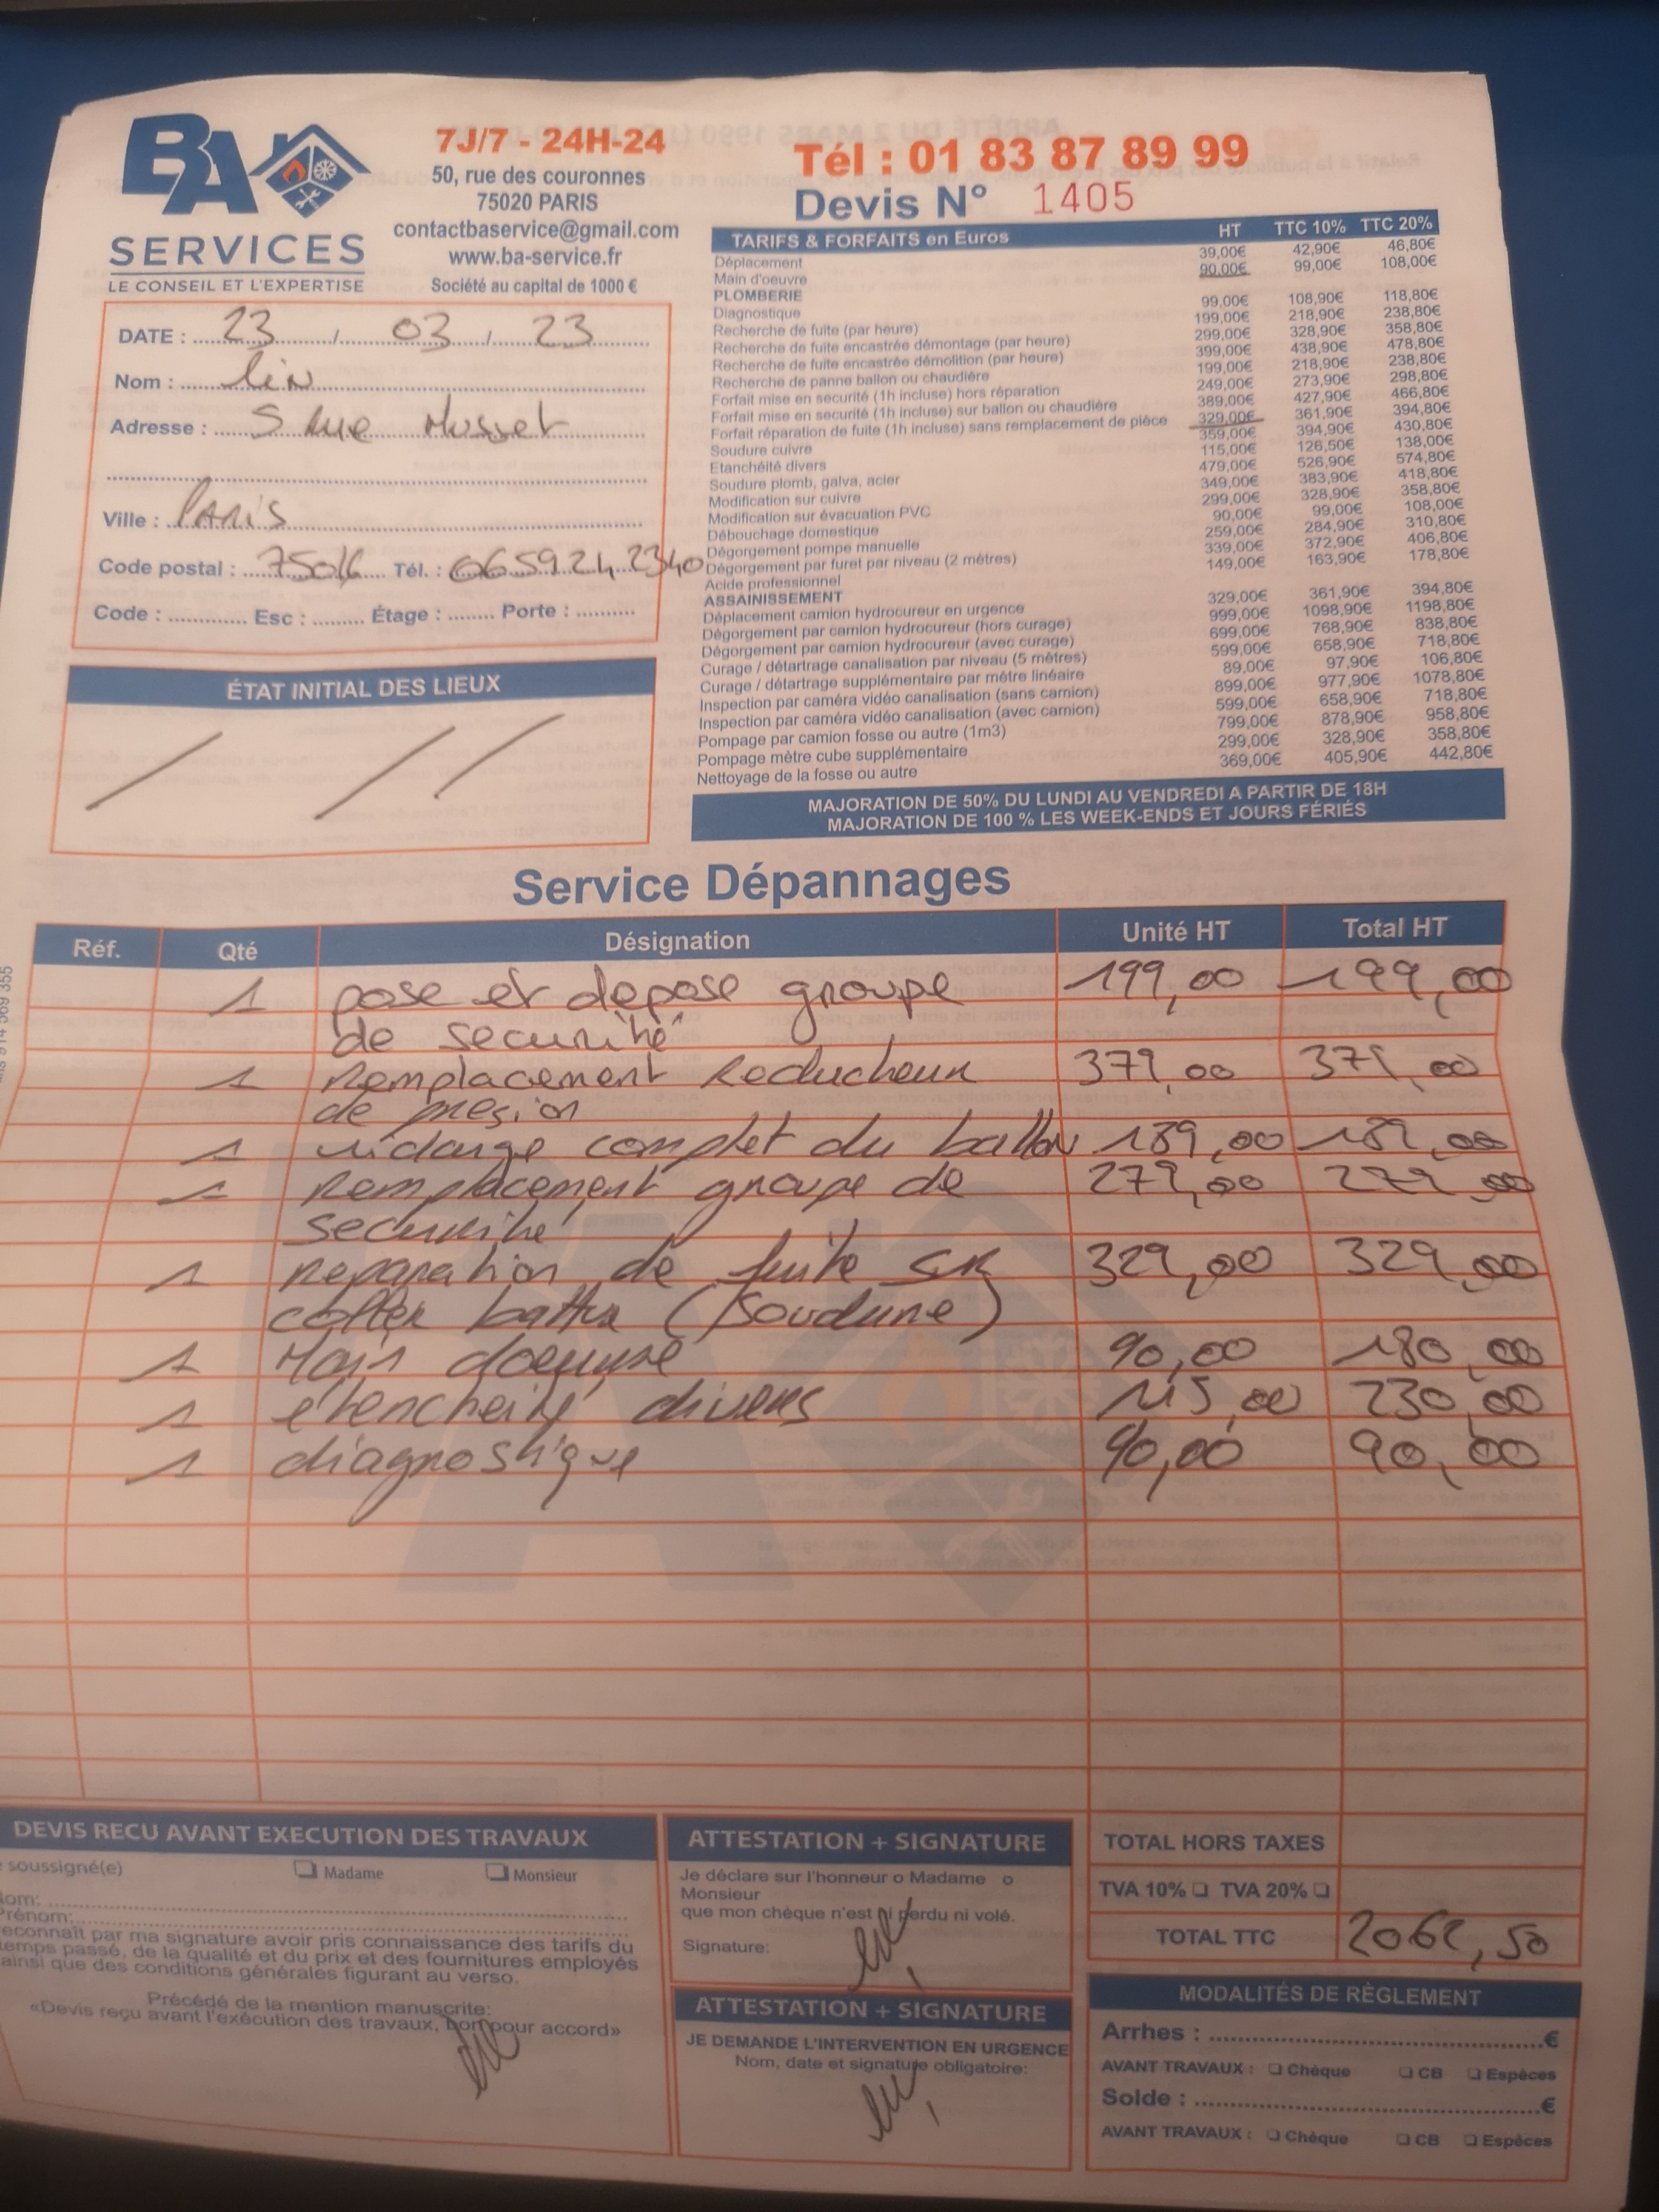 BA
SERVICES
LE CONSEIL ET L'EXPERTISE
7J/7 - 24H-24
50, rue des couronnes
75020 PARIS
contactbaservice@gmail.com
www.ba-service.fr
Société au capital de 1000 €
Tél : 01 83 87 89 99
Devis N° 1405
DATE : 23 / 03 / 23
Nom : lin
Adresse : 5 Rue Musset
Ville : PARIS
Code postal : 75016 Tél. : 0659242340
Code : Esc : Étage : Porte :
ÉTAT INITIAL DES LIEUX
TARIFS & FORFAITS en Euros HT TTC 10% TTC 20%
Déplacement 39,00€ 42,90€ 46,80€
Main d'oeuvre 90,00€ 99,00€ 108,00€
PLOMBERIE
Diagnostique 99,00€ 108,90€ 118,80€
Recherche de fuite (par heure) 199,00€ 218,90€ 238,80€
Recherche de fuite encastrée démontage (par heure) 299,00€ 328,90€ 358,80€
Recherche de fuite encastrée démolition (par heure) 399,00€ 438,90€ 478,80€
Recherche de panne ballon ou chaudière 199,00€ 218,90€ 238,80€
Forfait mise en securité (1h incluse) hors réparation 249,00€ 273,90€ 298,80€
Forfait mise en securité (1h incluse) sur ballon ou chaudière 389,00€ 427,90€ 466,80€
Forfait réparation de fuite (1h incluse) sans remplacement de pièce 329,00€ 361,90€ 394,80€
Soudure cuivre 359,00€ 394,90€ 430,80€
Etanchéité divers 115,00€ 126,50€ 138,00€
Soudure plomb, galva, acier 479,00€ 526,90€ 574,80€
Modification sur cuivre 349,00€ 383,90€ 418,80€
Modification sur évacuation PVC 299,00€ 328,90€ 358,80€
Débouchage domestique 90,00€ 99,00€ 108,00€
Dégorgement pompe manuelle 259,00€ 284,90€ 310,80€
Dégorgement par furet par niveau (2 mètres) 339,00€ 372,90€ 406,80€
Acide professionnel 149,00€ 163,90€ 178,80€
ASSAINISSEMENT
Déplacement camion hydrocureur en urgence 329,00€ 361,90€ 394,80€
Dégorgement par camion hydrocureur (hors curage) 999,00€ 1098,90€ 1198,80€
Dégorgement par camion hydrocureur (avec curage) 699,00€ 768,90€ 838,80€
Curage / détartrage canalisation par niveau (5 mètres) 599,00€ 658,90€ 718,80€
Curage / détartrage supplémentaire par métre linéaire 89,00€ 97,90€ 106,80€
Inspection par caméra vidéo canalisation (sans camion) 899,00€ 977,90€ 1078,80€
Inspection par caméra vidéo canalisation (avec camion) 599,00€ 658,90€ 718,80€
Pompage par camion fosse ou autre (1m3) 799,00€ 878,90€ 958,80€
Pompage mètre cube supplémentaire 299,00€ 328,90€ 358,80€
Nettoyage de la fosse ou autre 369,00€ 405,90€ 442,80€
MAJORATION DE 50% DU LUNDI AU VENDREDI A PARTIR DE 18H
MAJORATION DE 100 % LES WEEK-ENDS ET JOURS FÉRIÉS
Service Dépannages
Réf. Qté Désignation Unité HT Total HT
1 pose et depose groupe 199,00 199,00
de securité
1 Remplacement Reducteur 379,00 379,00
de presion
1 vidange complet du ballon 189,00 189,00
1 Remplacement groupe de 279,00 279,00
securité
1 reparation de fuite sur 329,00 329,00
(Soudure)
1 Main doeuvre 90,00 180,00
1 etencheité divers 115,00 230,00
1 diagnostique 90,00 90,00
DEVIS RECU AVANT EXECUTION DES TRAVAUX
soussigné(e) Madame Monsieur
Nom:
Prénom:
reconnaît par ma signature avoir pris connaissance des tarifs du
temps passé, de la qualité et du prix et des fournitures employés
ainsi que des conditions générales figurant au verso.
Précédé de la mention manuscrite:
«Devis reçu avant l'exécution des travaux, bon pour accord»
ATTESTATION + SIGNATURE
Je déclare sur l'honneur o Madame o
Monsieur
que mon chèque n'est ni perdu ni volé.
Signature:
ATTESTATION + SIGNATURE
JE DEMANDE L'INTERVENTION EN URGENCE
Nom, date et signature obligatoire:
TOTAL HORS TAXES
TVA 10% TVA 20%
TOTAL TTC 2062,50
MODALITÉS DE RÈGLEMENT
Arrhes : €
AVANT TRAVAUX : Chèque CB Espèces
Solde : €
AVANT TRAVAUX : Chèque CB Espèces